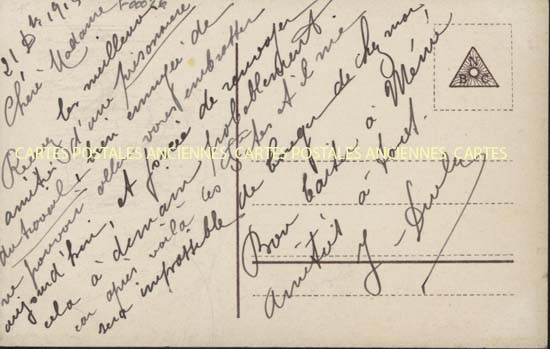 21 Dbre 1915
Chère Madame
Recevez les meilleures
amitiés d'une prisonnière
du travail, bien ennuyée de
ne pouvoir aller vous embrasser
aujourd'hui, et forcée de renvoyer
cela à demain probablement.
car après voilà les fêtes et il me
sera impossible de bouger de chez moi
Bon baiser à Mémé
amitiés à tous.
J
CARTES POSTALES ANCIENNES CARTES POSTALES ANCIENNES CARTES
N
B C